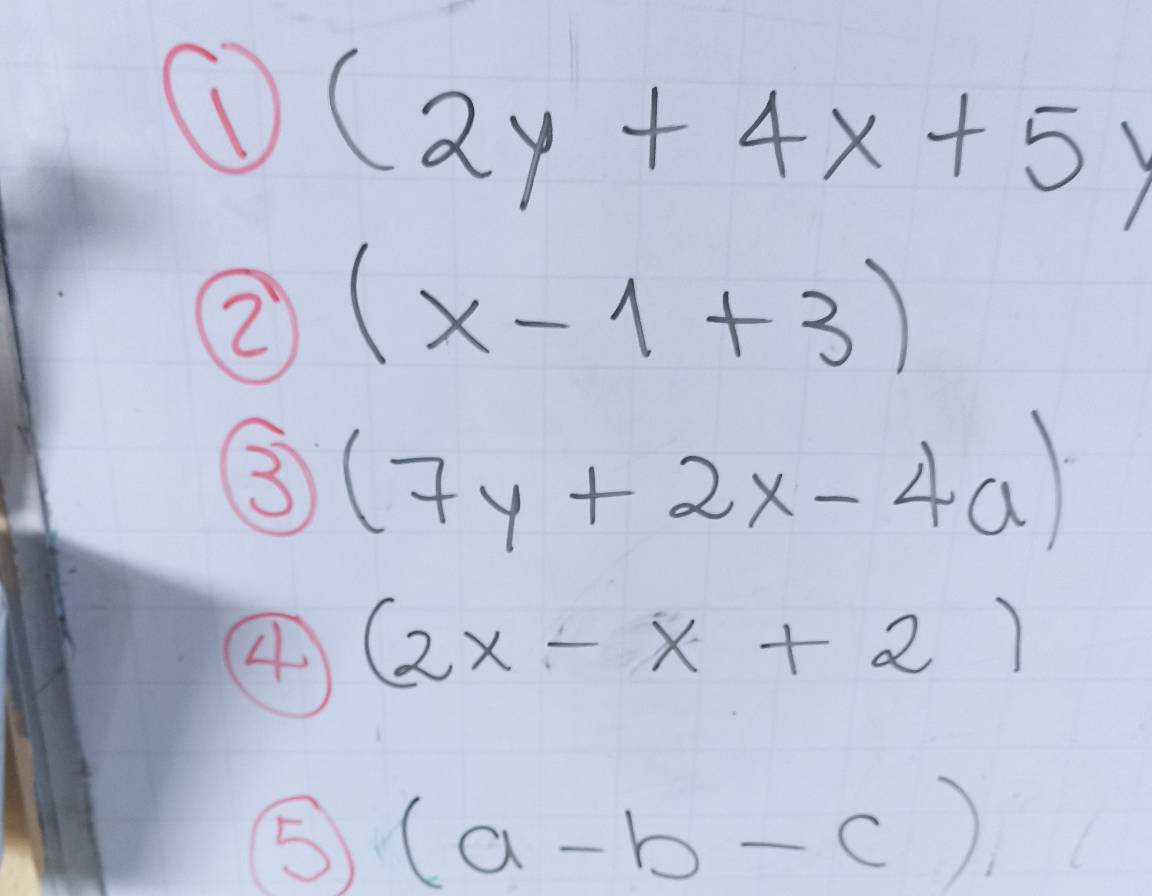 ① (2y + 4x + 5y
② (x - 1 + 3)
③ (7y + 2x - 4a)
④ (2x - x + 2)
⑤ (a - b - c)